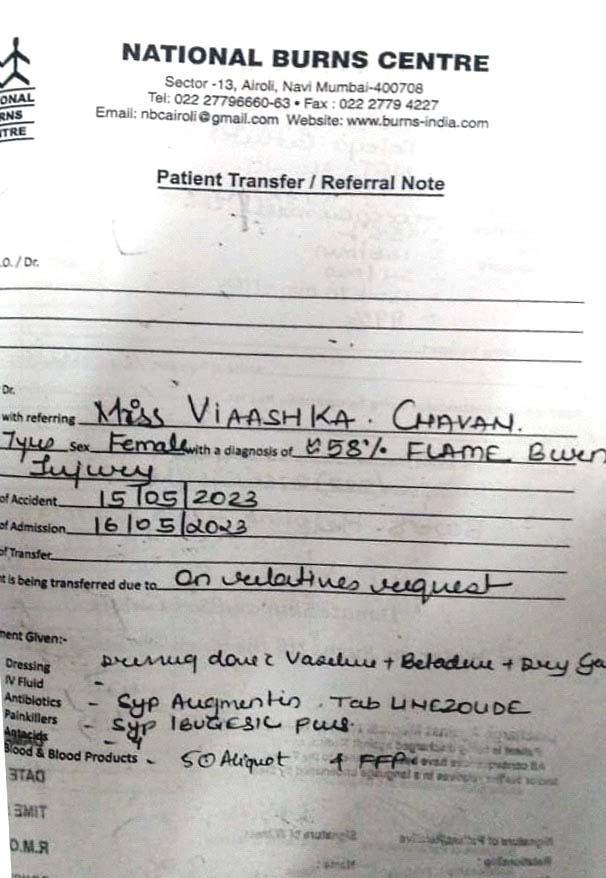 ONAL
RNS
TRE
NATIONAL BURNS CENTRE
Sector -13, Airoli, Navi Mumbai-400708
Tel: 022 27796660-63 • Fax : 022 2779 4227
Email: nbcairoli@gmail.com Website: www.burns-india.com
Patient Transfer / Referral Note
.O. / Dr.
Dr.
with referring Miss VIAASHKA. CHAVAN.
7yrs Sex Female with a diagnosis of 58% FLAME Burn
Injury
of Accident 15/05/2023
of Admission 16/05/2023
of Transfer
t is being transferred due to on relatives request
ment Given:-
Dressing Dressing done c Vaseline + Betadine + Dry Ga
IV Fluid -
Antibiotics - Syp Augmentin. Tab LINEZOLIDE
Painkillers - Syp IBUGESIC PLUS.
Antacids - 4
Blood & Blood Products - 50 Aliquot FFP
DATE
TIME
R.M.O